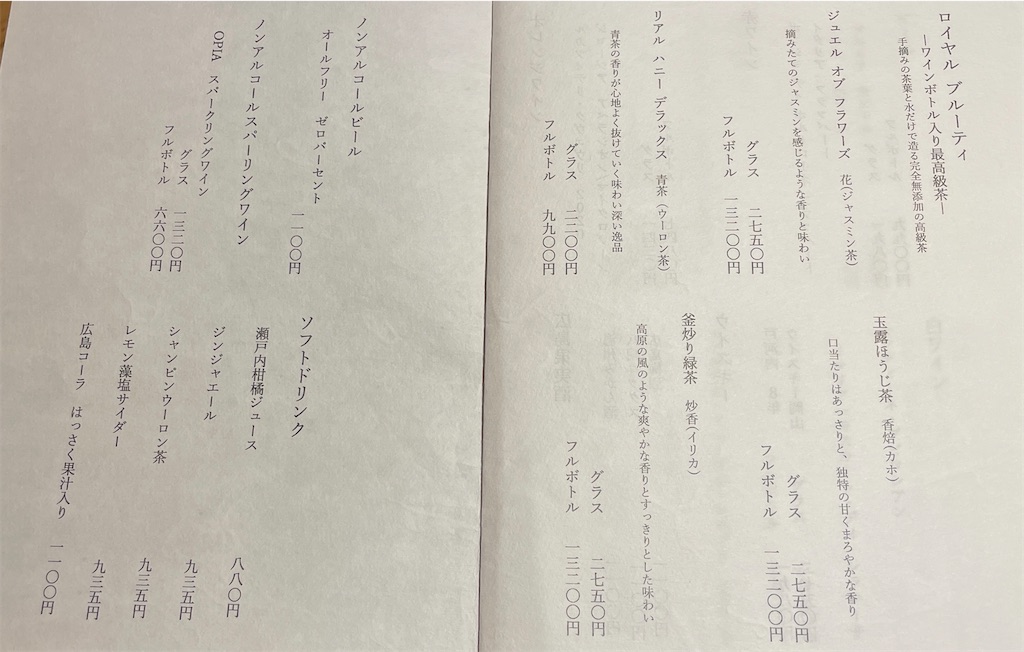 ロイヤル ブルーティ
―ワインボトル入り最高級茶―
手摘みの茶葉と水だけで造る完全無添加の高級茶
ジュエル オブ フラワーズ 花(ジャスミン茶)
摘みたてのジャスミンを感じるような香りと味わい
グラス 二七五〇円
フルボトル 一三二〇〇円
リアル ハニー デラックス 青茶(ウーロン茶)
青茶の香りが心地よく抜けていく味わい深い逸品
グラス 二二〇〇円
フルボトル 九九〇〇円
玉露ほうじ茶 香焙(カホ)
口当たりはあっさりと、独特の甘くまろやかな香り
グラス 二七五〇円
フルボトル 一三二〇〇円
釜炒り緑茶 炒香(イリカ)
高原の風のような爽やかな香りとすっきりとした味わい
グラス 二七五〇円
フルボトル 一三二〇〇円
ノンアルコールビール
オールフリー ゼロパーセント 一一〇〇円
ノンアルコールスパーリングワイン
OPIA スパークリングワイン
グラス 一三二〇円
フルボトル 六六〇〇円
ソフトドリンク
瀬戸内柑橘ジュース 八八〇円
ジンジャエール 九三五円
シャンピンウーロン茶 九三五円
レモン藻塩サイダー 九三五円
広島コーラ はっさく果汁入り 一一〇〇円